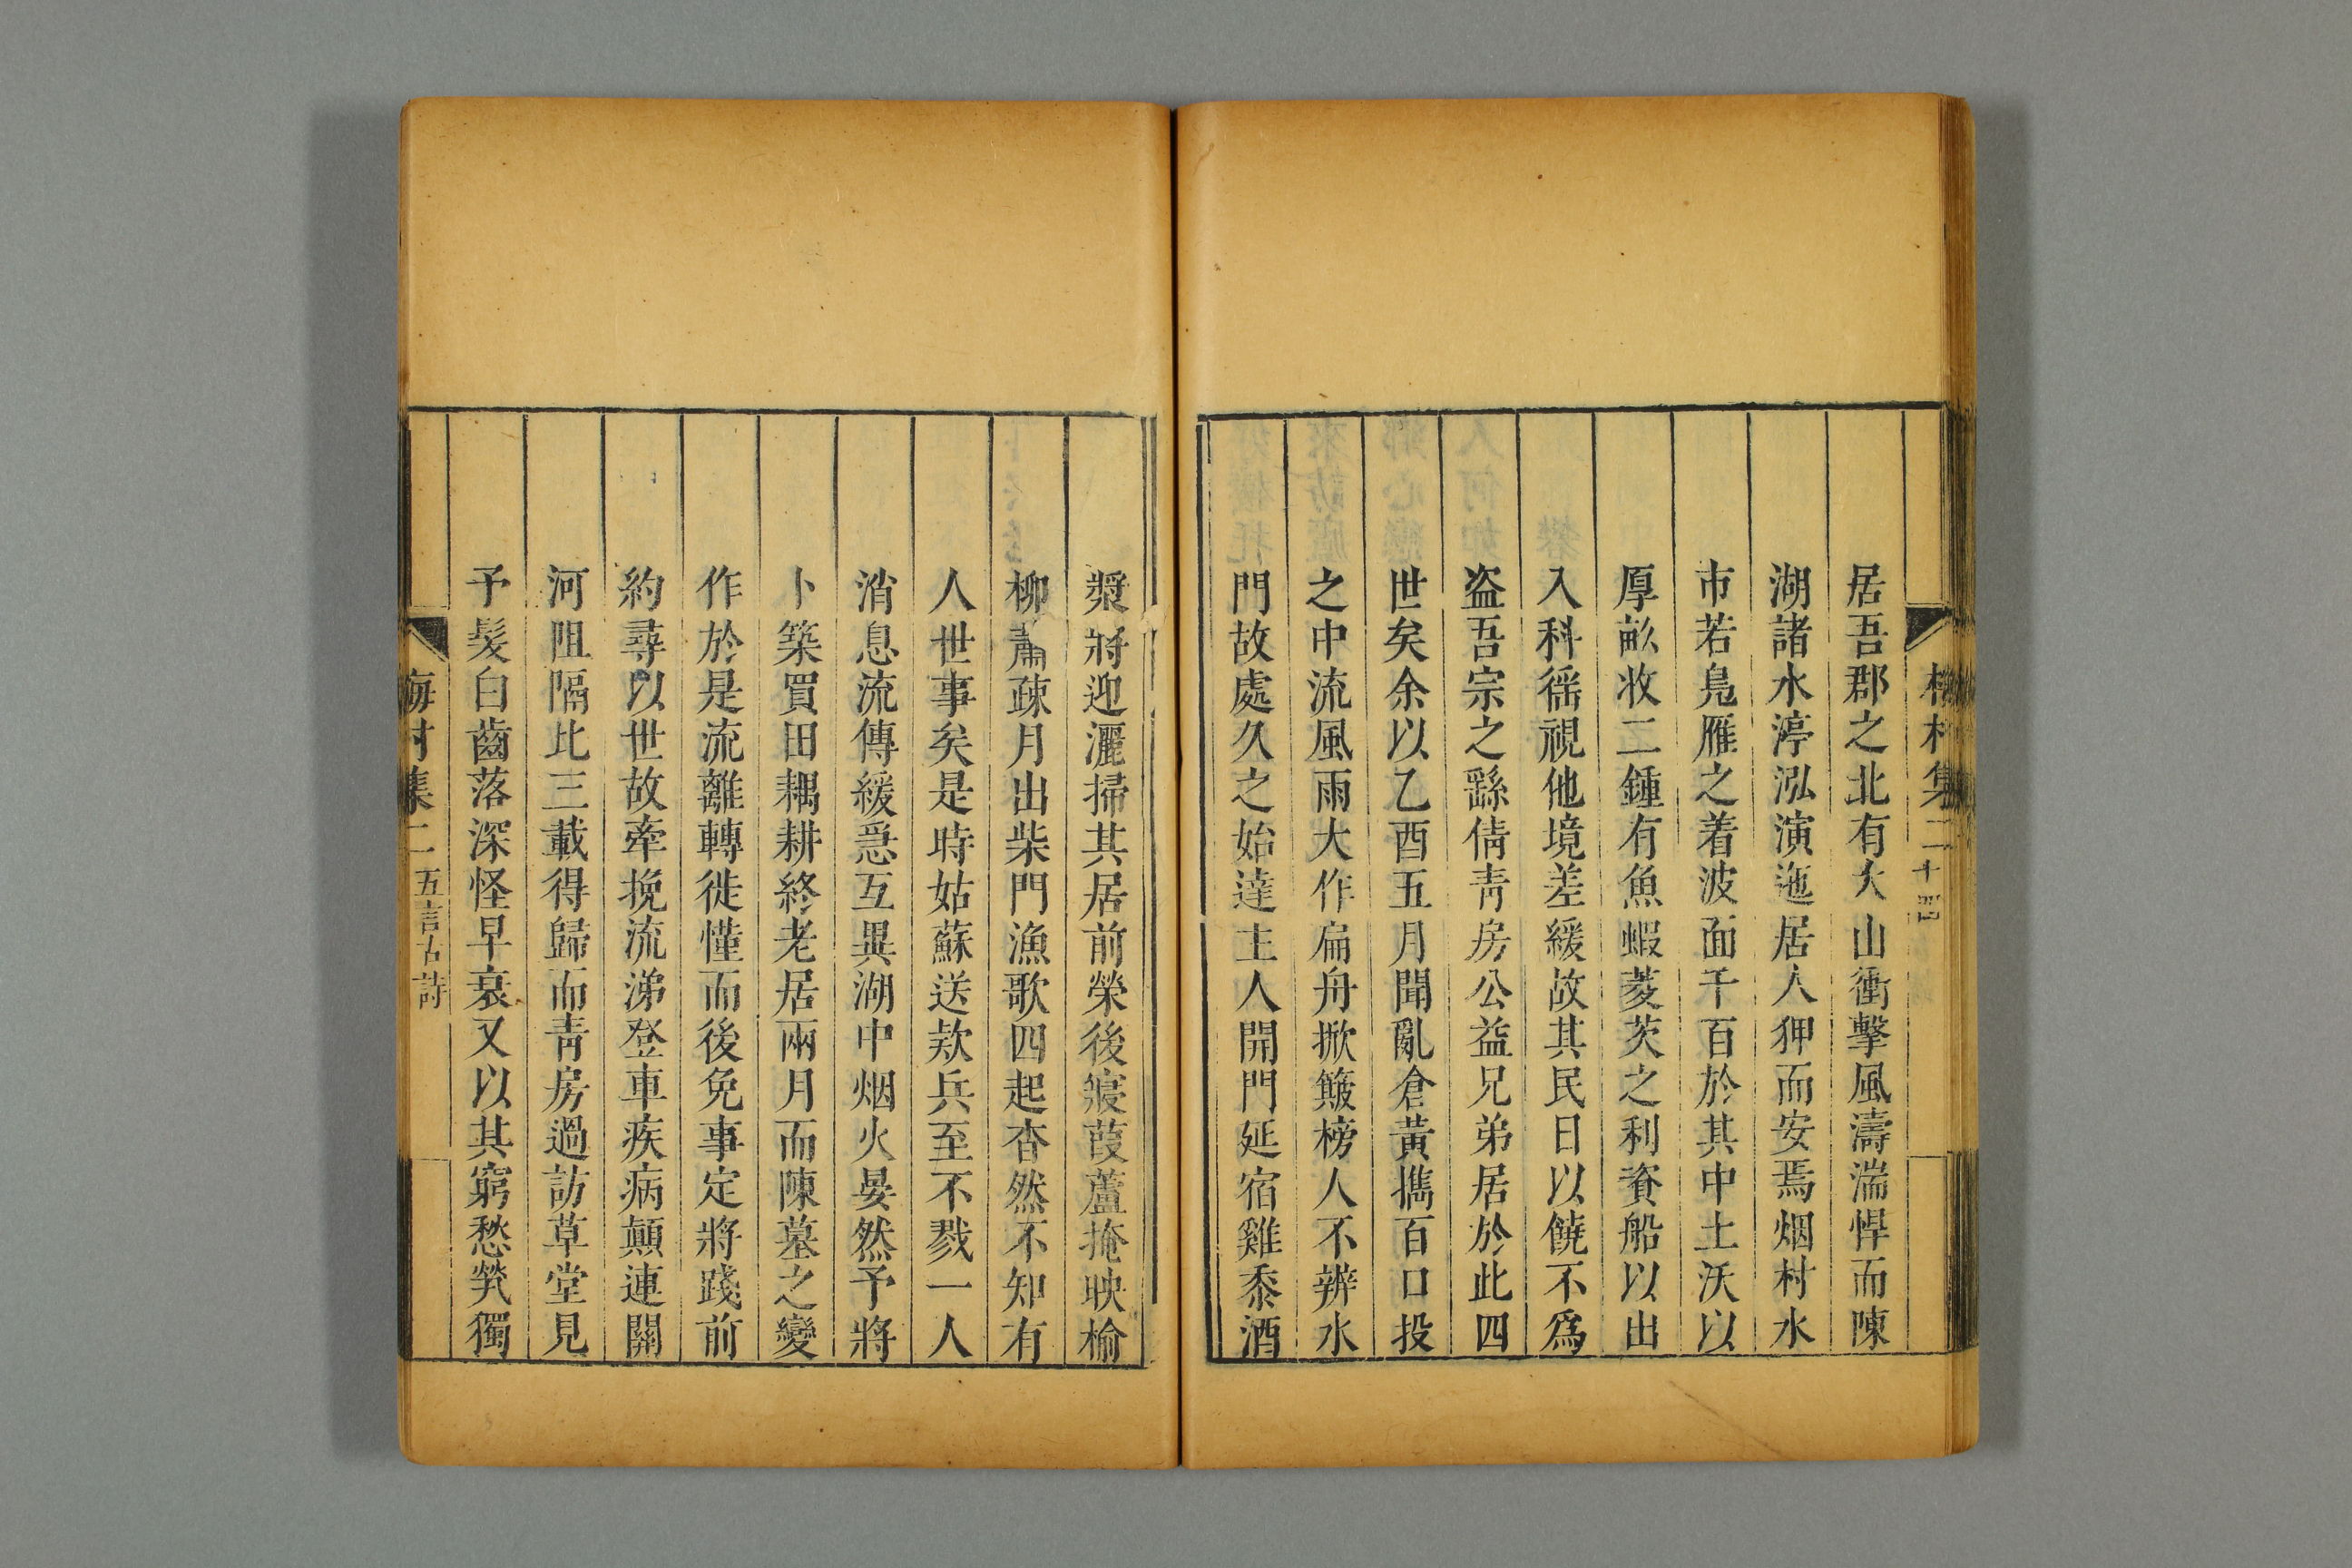 梅村集二
二十四
居吾郡之北有大山衝擊風濤湍悍而陳
湖諸水渟泓演迤居人狎而安焉烟村水
市若鳧雁之着波面千百於其中土沃以
厚畝收二鍾有魚蝦菱芡之利資船以出
入科徭視他境差緩故其民日以饒不爲
盜吾宗之繇倩青房公益兄弟居於此四
世矣余以乙酉五月聞亂倉黃擕百口投
之中流風雨大作扁舟掀簸榜人不辨水
門故處久之始達主人開門延宿雞黍酒
漿將迎灑掃其居前榮後寢葭蘆掩映榆
柳蕭疎月出柴門漁歌四起杳然不知有
人世事矣是時姑蘇送欵兵至不戮一人
消息流傳緩急互異湖中烟火晏然予將
卜築買田耦耕終老居兩月而陳墓之變
作於是流離轉徙慬而後免事定將踐前
約尋以世故牽挽流涕登車疾病顛連關
河阻隔比三載得歸而青房過訪草堂見
予髮白齒落深怪早衰又以其窮愁煢獨
梅村集二
五言古詩